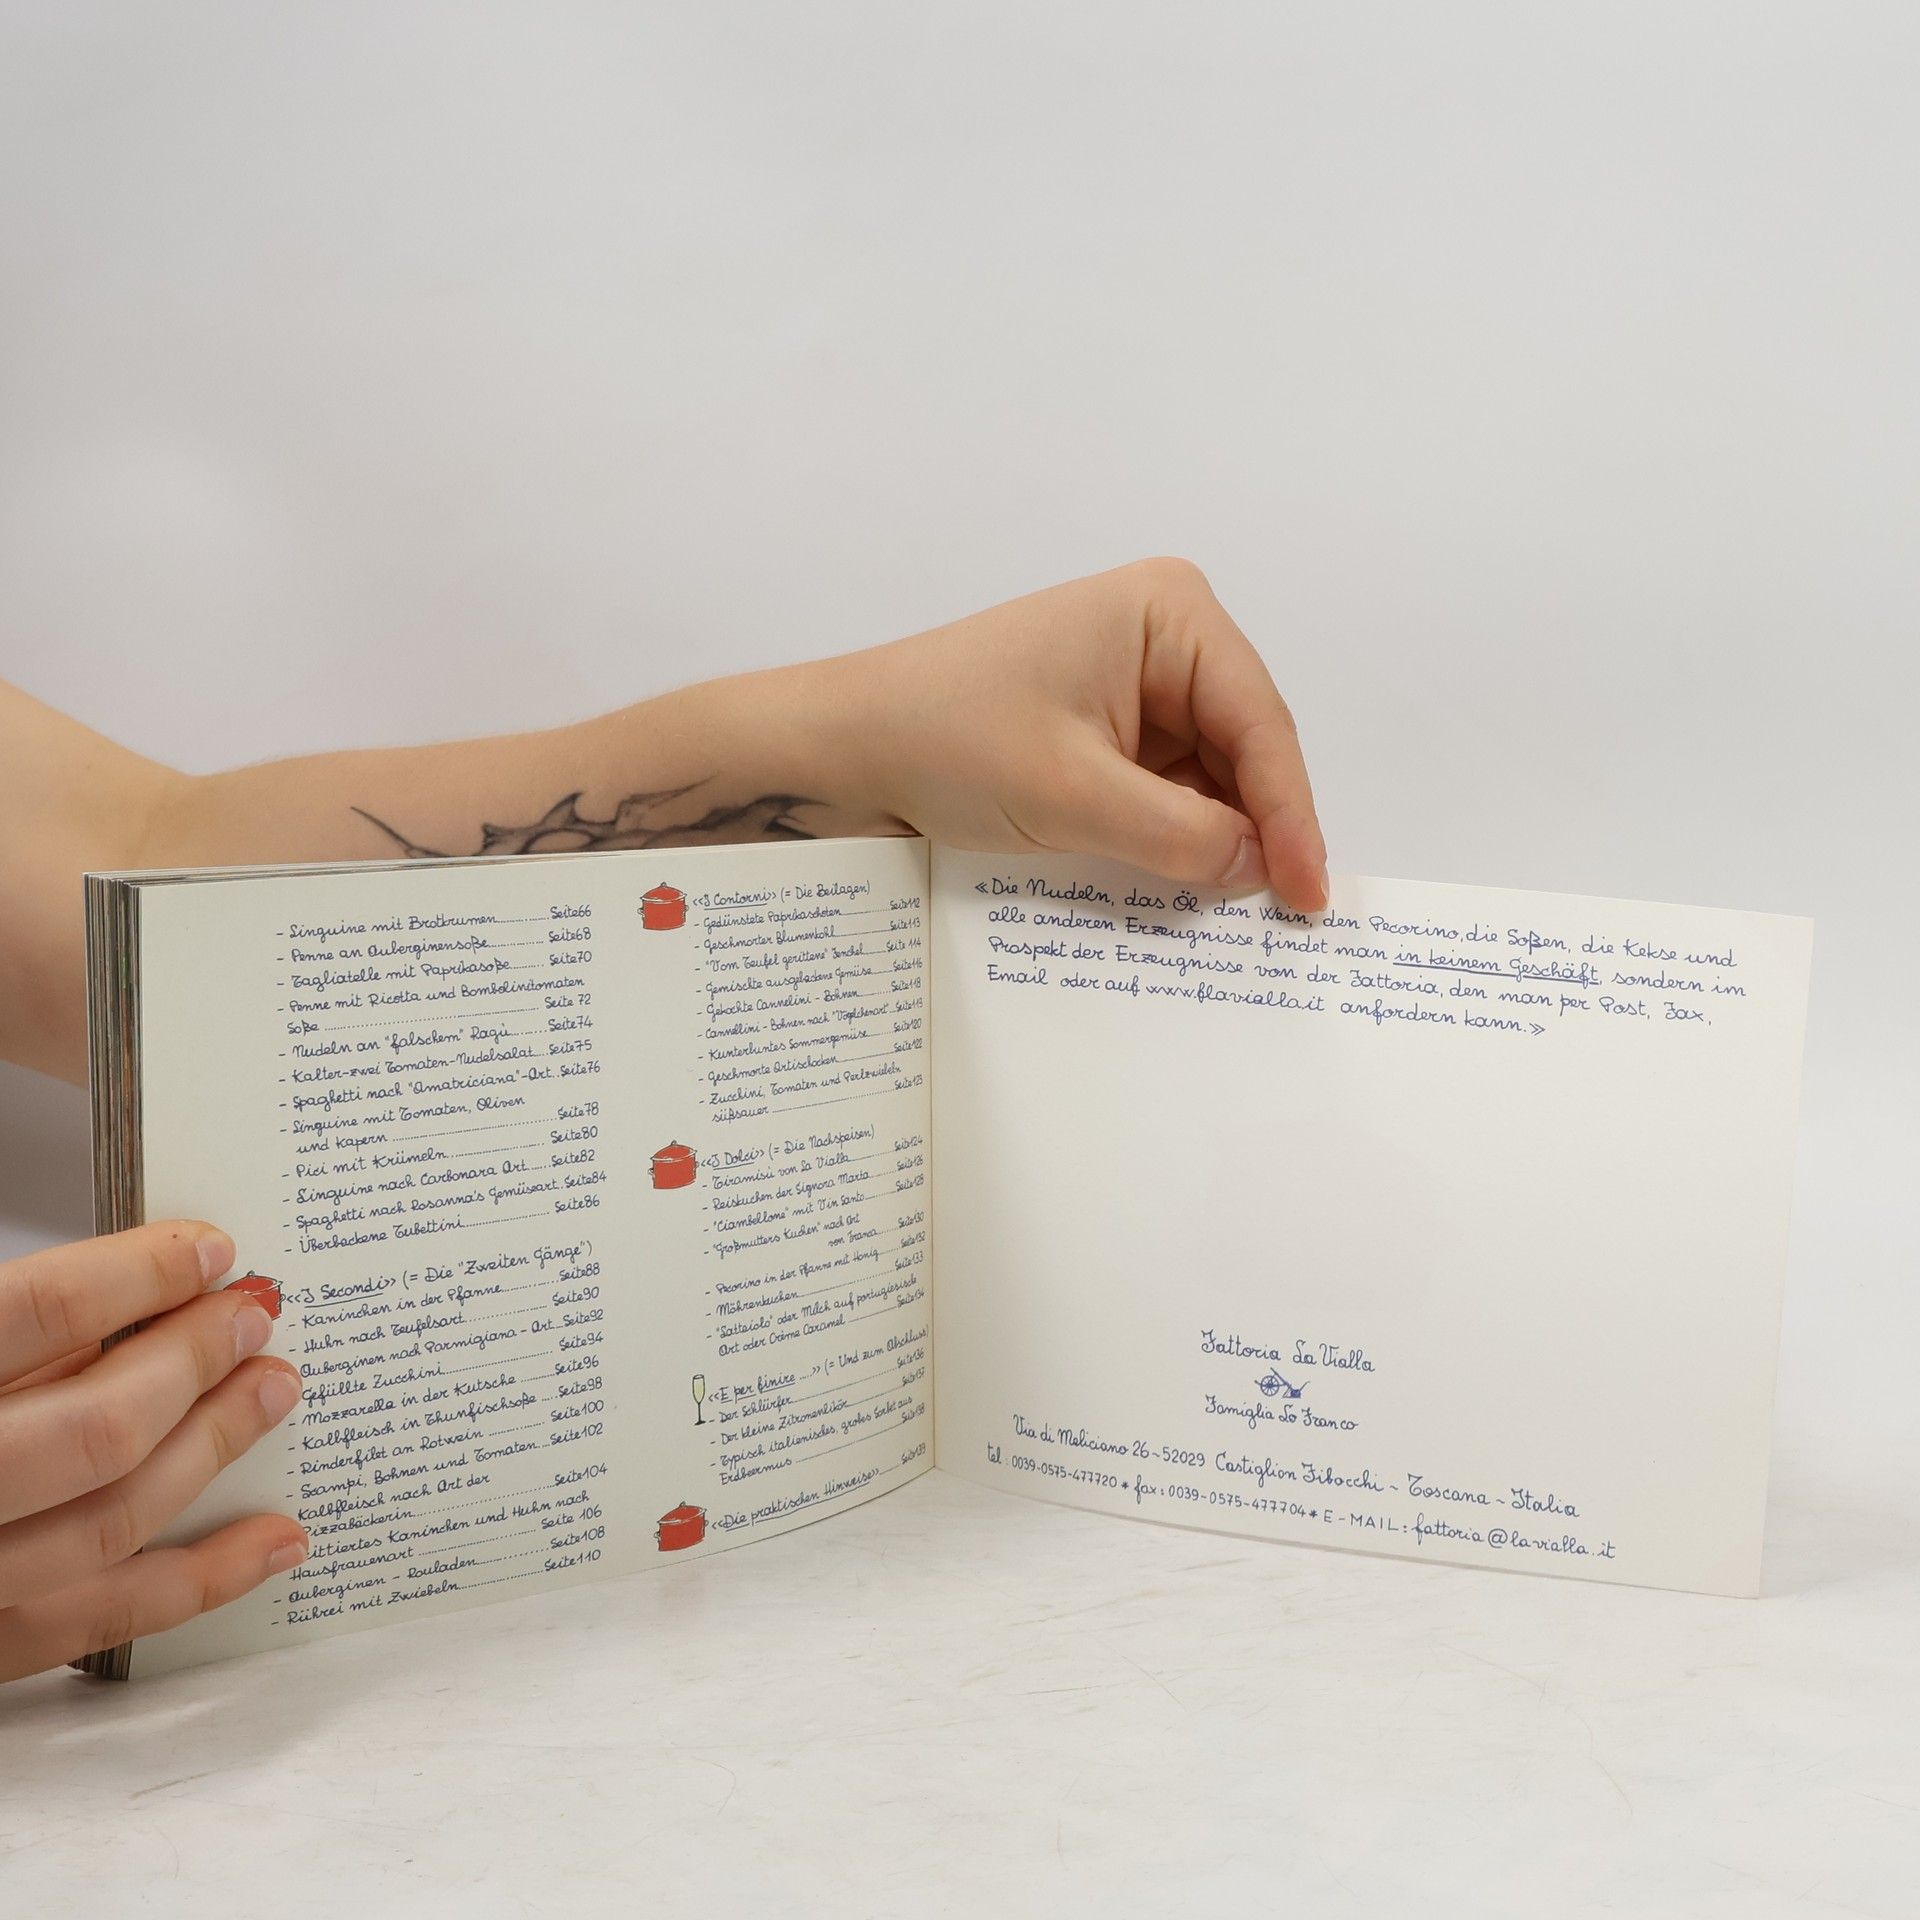 - Linguine mit Brotkrumen............Seite66
- Penne an Auberginensoße............Seite68
- Tagliatelle mit Paprikasoße........Seite70
- Penne mit Ricotta und Bombolinitomaten
Soße ................................ Seite 72
- Nudeln an "falschem" Ragù..........Seite74
- Kalter-zwei Tomaten-Nudelsalat...Seite75
- Spaghetti nach "Amatriciana"-Art..Seite76
- Linguine mit Tomaten, Oliven
und Kapern ..........................Seite78
- Pici mit Krümeln...................Seite80
- Linguine nach Carbonara Art.....Seite82
- Spaghetti nach Rosanna's Gemüseart.Seite84
- Überbackene Tubettini..............Seite86
«I Secondi» (= Die "Zweiten Gänge")
- Kaninchen in der Pfanne............Seite88
- Huhn nach Teufelsart...............Seite90
Auberginen nach Parmigiana - Art...Seite92
Gefüllte Zucchini....................Seite94
- Mozzarella in der Kutsche .........Seite96
- Kalbfleisch in Thunfischsoße ......Seite98
- Rinderfilet an Rotwein ............Seite100
- Scampi, Bohnen und Tomaten....Seite102
Kalbfleisch nach Art der
Pizzabäckerin........................Seite104
ittiertes Kaninchen und Huhn nach
Hausfrauenart .......................Seite 106
- Auberginen - Rouladen..............Seite108
- Rührei mit Zwiebeln................Seite110
«I Contorni» (= Die Beilagen)
- Gedünstete Paprikaschoten..........Seite112
- Geschmorter Blumenkohl.............Seite113
- "Vom Teufel gerittene" Fenchel.....Seite 114
- Gemischte ausgebackene Gemüse......Seite116
- Gekochte Cannelini - Bohnen........Seite118
- Cannellini - Bohnen nach "Vögelchenart"..Seite119
- Kunterbuntes Sommergemüse..........Seite120
- Geschmorte Artischocken............Seite122
- Zucchini, Tomaten und Perlzwiebeln
süßsauer ............................Seite123
«I Dolci» (= Die Nachspeisen)
- Tiramisù von La Vialla.............Seite124
- Reiskuchen der Signora Marta.......Seite126
- "Ciambellone" mit Vin Santo........Seite128
- "Großmutters Kuchen" nach Art
von Franca...........................Seite130
- Pecorino in der Pfanne mit Honig...Seite132
- Möhrenkuchen.......................Seite133
- "Latteiolo" oder Milch auf portugiesische
Art oder Crème Caramel ..............Seite134
«E per finire .....» (= Und zum Abschluss)
- Der Schlürfer......................Seite136
- Der kleine Zitronenlikör...........Seite137
- Typisch italienisches, grobes Sorbet aus
Erdbeermus ..........................Seite138
«Die praktischen Hinweise»...........Seite139
«Die Nudeln, das Öl, den Wein, den Pecorino, die Soßen, die Kekse und
alle anderen Erzeugnisse findet man in keinem Geschäft, sondern im
Prospekt der Erzeugnisse von der Fattoria, den man per Post, Fax,
Email oder auf www.flavialla.it anfordern kann.»
Fattoria La Vialla
Famiglia Lo Franco
Via di Meliciano 26~52029 Castiglion Fibocchi ~ Toscana ~ Italia
tel : 0039-0575-477720 * fax : 0039-0575-477704 * E-MAIL : fattoria@lavialla.it